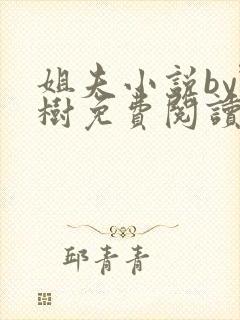 姐夫小说by
樹免費閱讀
邱青青